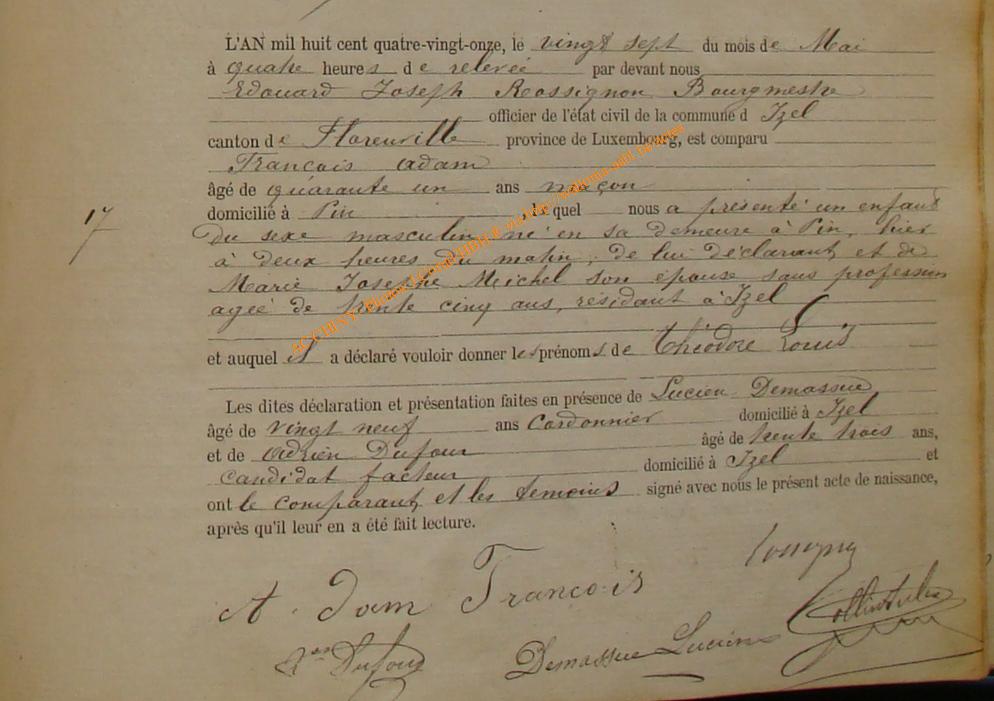 L'AN mil huit cent quatre-vingt-onze, le vingt sept du mois de Mai
à quatre heures de relevée par devant nous
Edouard Joseph Rossignon Bourgmestre
officier de l'état civil de la commune d Izel
canton de Florenville province de Luxembourg, est comparu
François Adam
âgé de quarante un ans maçon
17
domicilié à Pin lequel nous a présenté un enfant
du sexe masculin, né en sa demeure à Pin, hier
à deux heures du matin, de lui déclarant et de
Marie Josephe Michel son épouse sans profession
agée de trente cinq ans, résidant à Izel
et auquel il a déclaré vouloir donner les prénoms de Théodore Louis
Les dites déclaration et présentation faites en présence de Lucien Demassue
âgé de vingt neuf ans Cordonnier domicilié à Izel
et de Adrien Dufour âgé de trente trois ans,
candidat facteur domicilié à Izel et
ont le comparant et les témoins signé avec nous le présent acte de naissance,
après qu'il leur en a été fait lecture.
A. dam François
Dufour Demassue Lucien